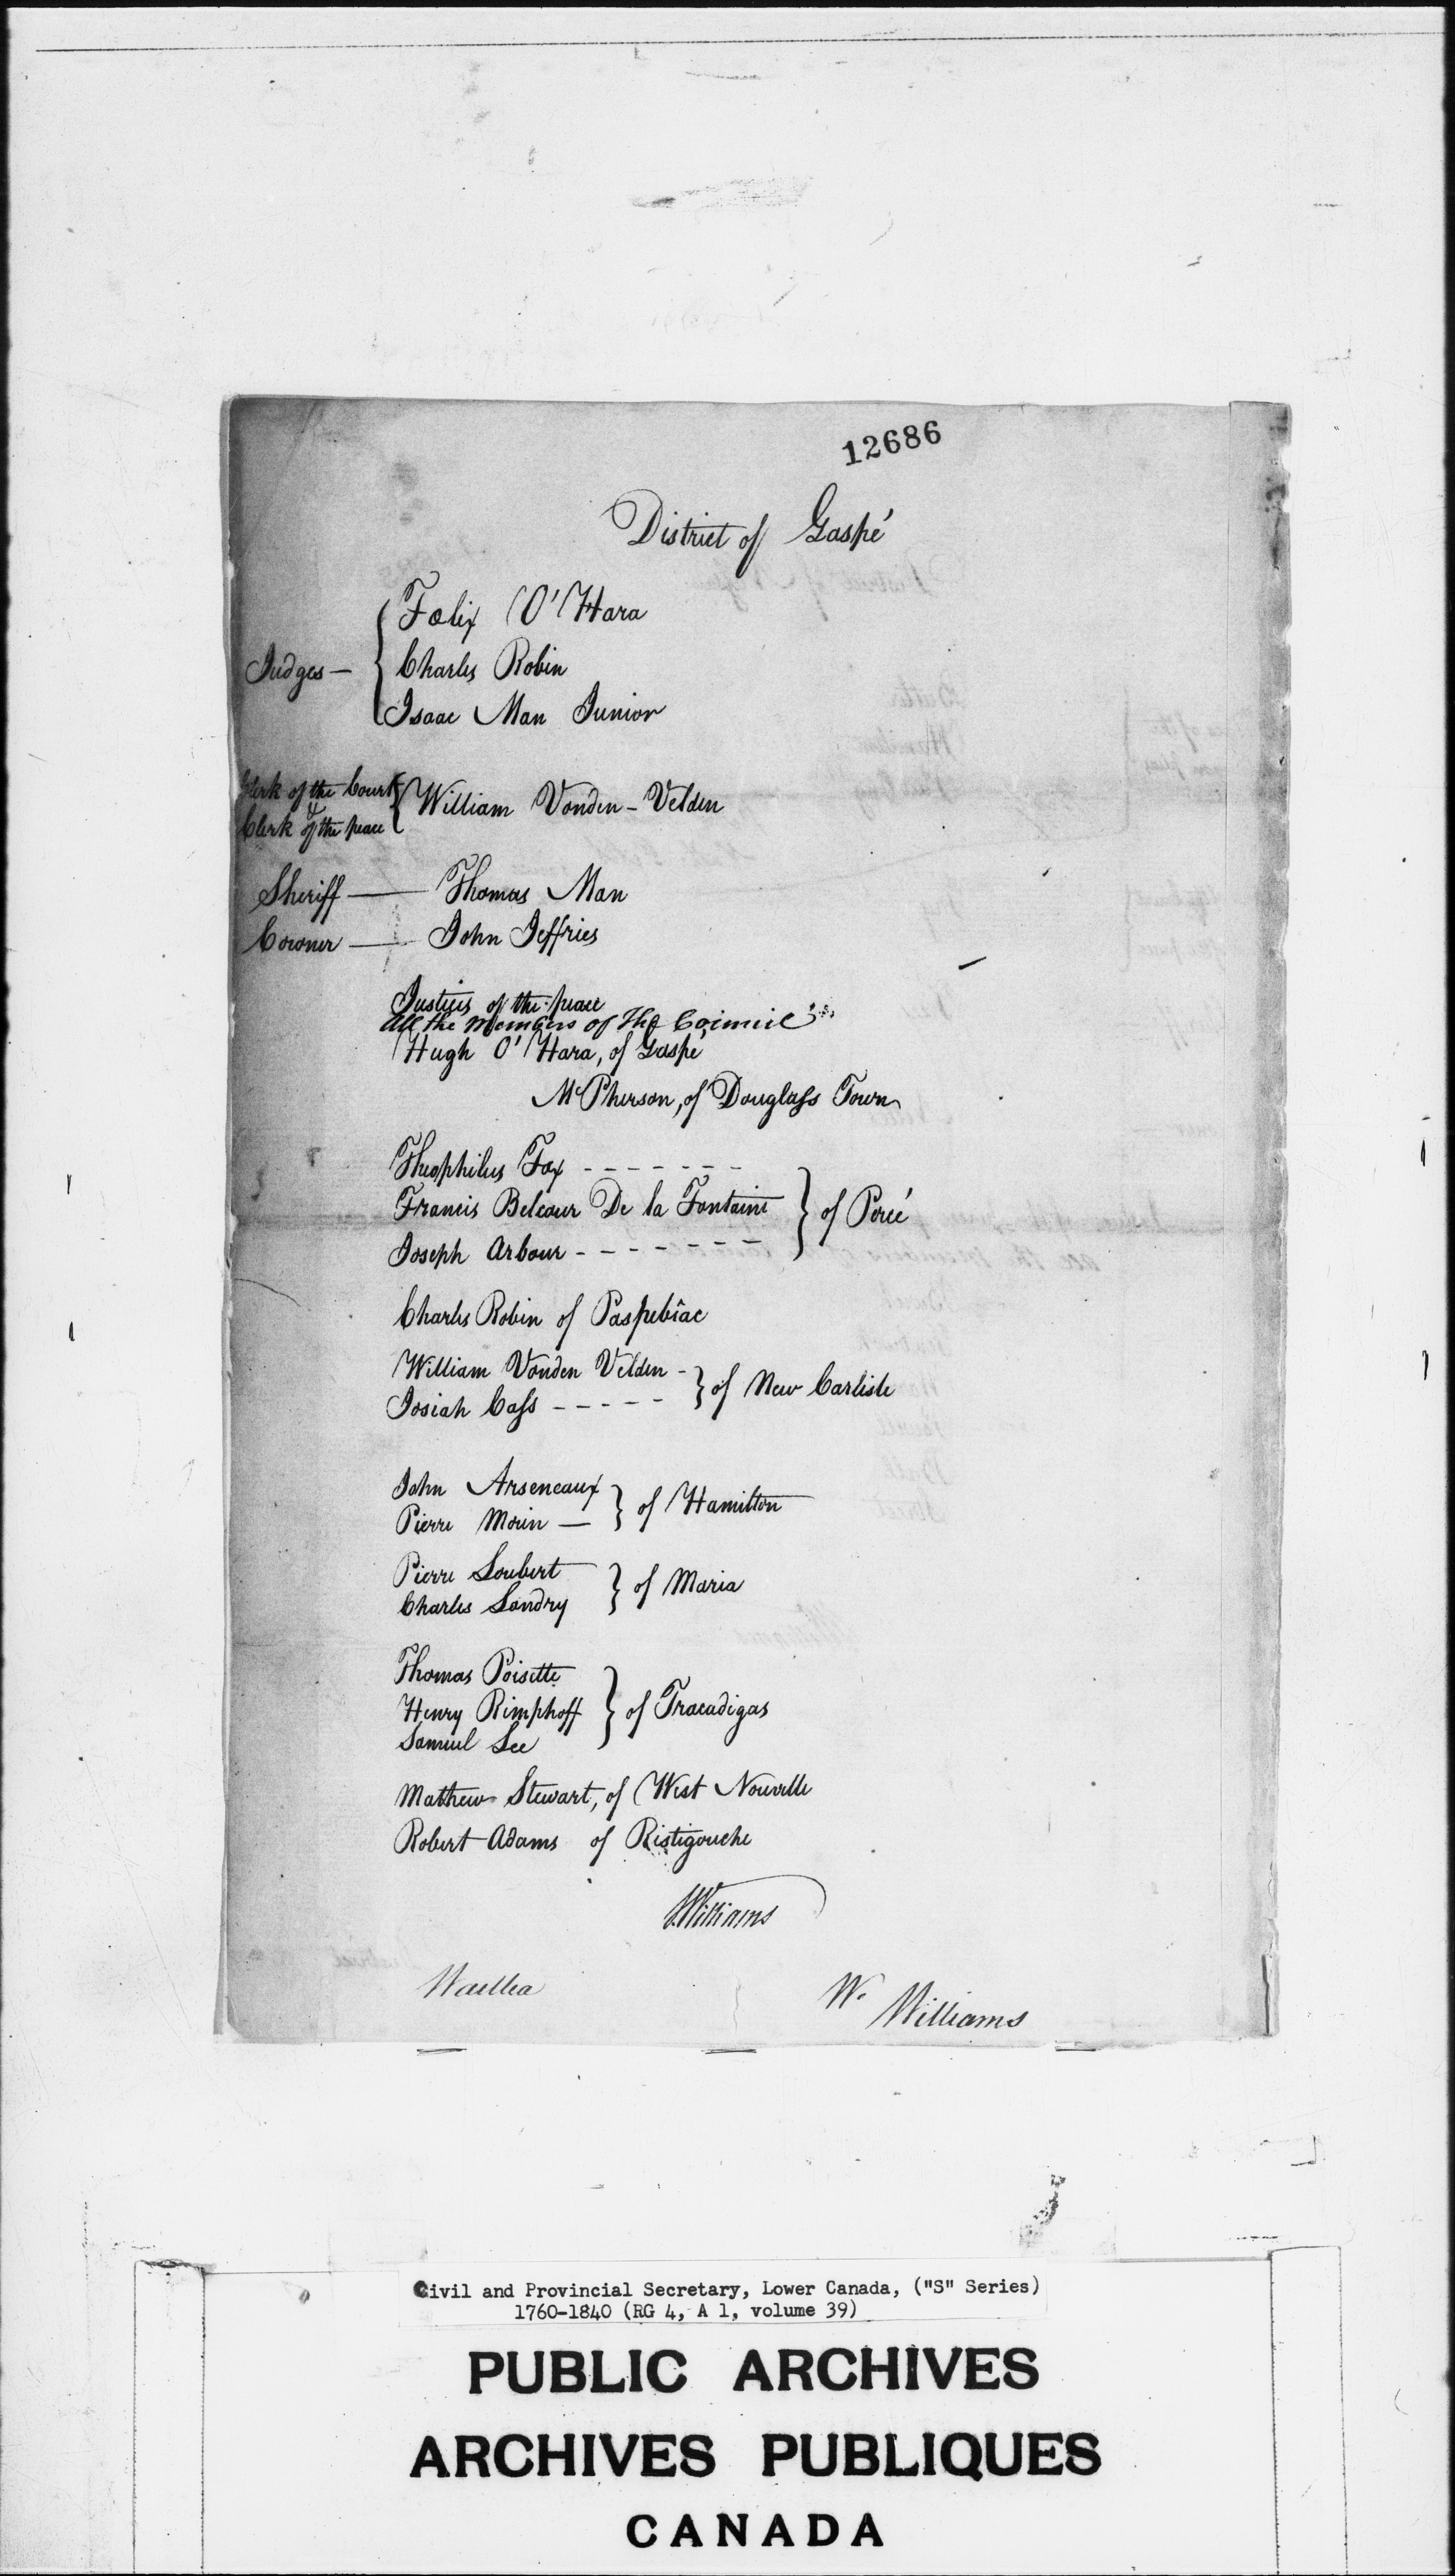 12686
District of Gaspé
Judges — { Fœlix O'Hara
Charles Robin
Isaac Man Junior
Clerk of the Court
&
Clerk of the peace { William Vonden-Velden
Sheriff — Thomas Man
Coroner — John Jeffries
Justices of the peace
all the Members of the Council
Hugh O'Hara, of Gaspé
McPherson, of Douglass Town
Theophilus Fox - - - - - - -
Francis Belcour De la Fontaine } of Percé
Joseph Arbour - - - - - - -
Charles Robin of Paspebiac
William Vonden Velden -
Josiah Cass - - - - - } of New Carlisle
John Arseneaux
Pierre Morin — } of Hamilton
Pierre Loubert
Charles Landry } of Maria
Thomas Poisette
Henry Rimphoff } of Tracadigas
Samuel Lee
Mathew Stewart, of West Nouvelle
Robert Adams of Ristigouche
Williams
W. Williams
Civil and Provincial Secretary, Lower Canada, ("S" Series)
1760-1840 (RG 4, A 1, volume 39)
PUBLIC ARCHIVES
ARCHIVES PUBLIQUES
CANADA